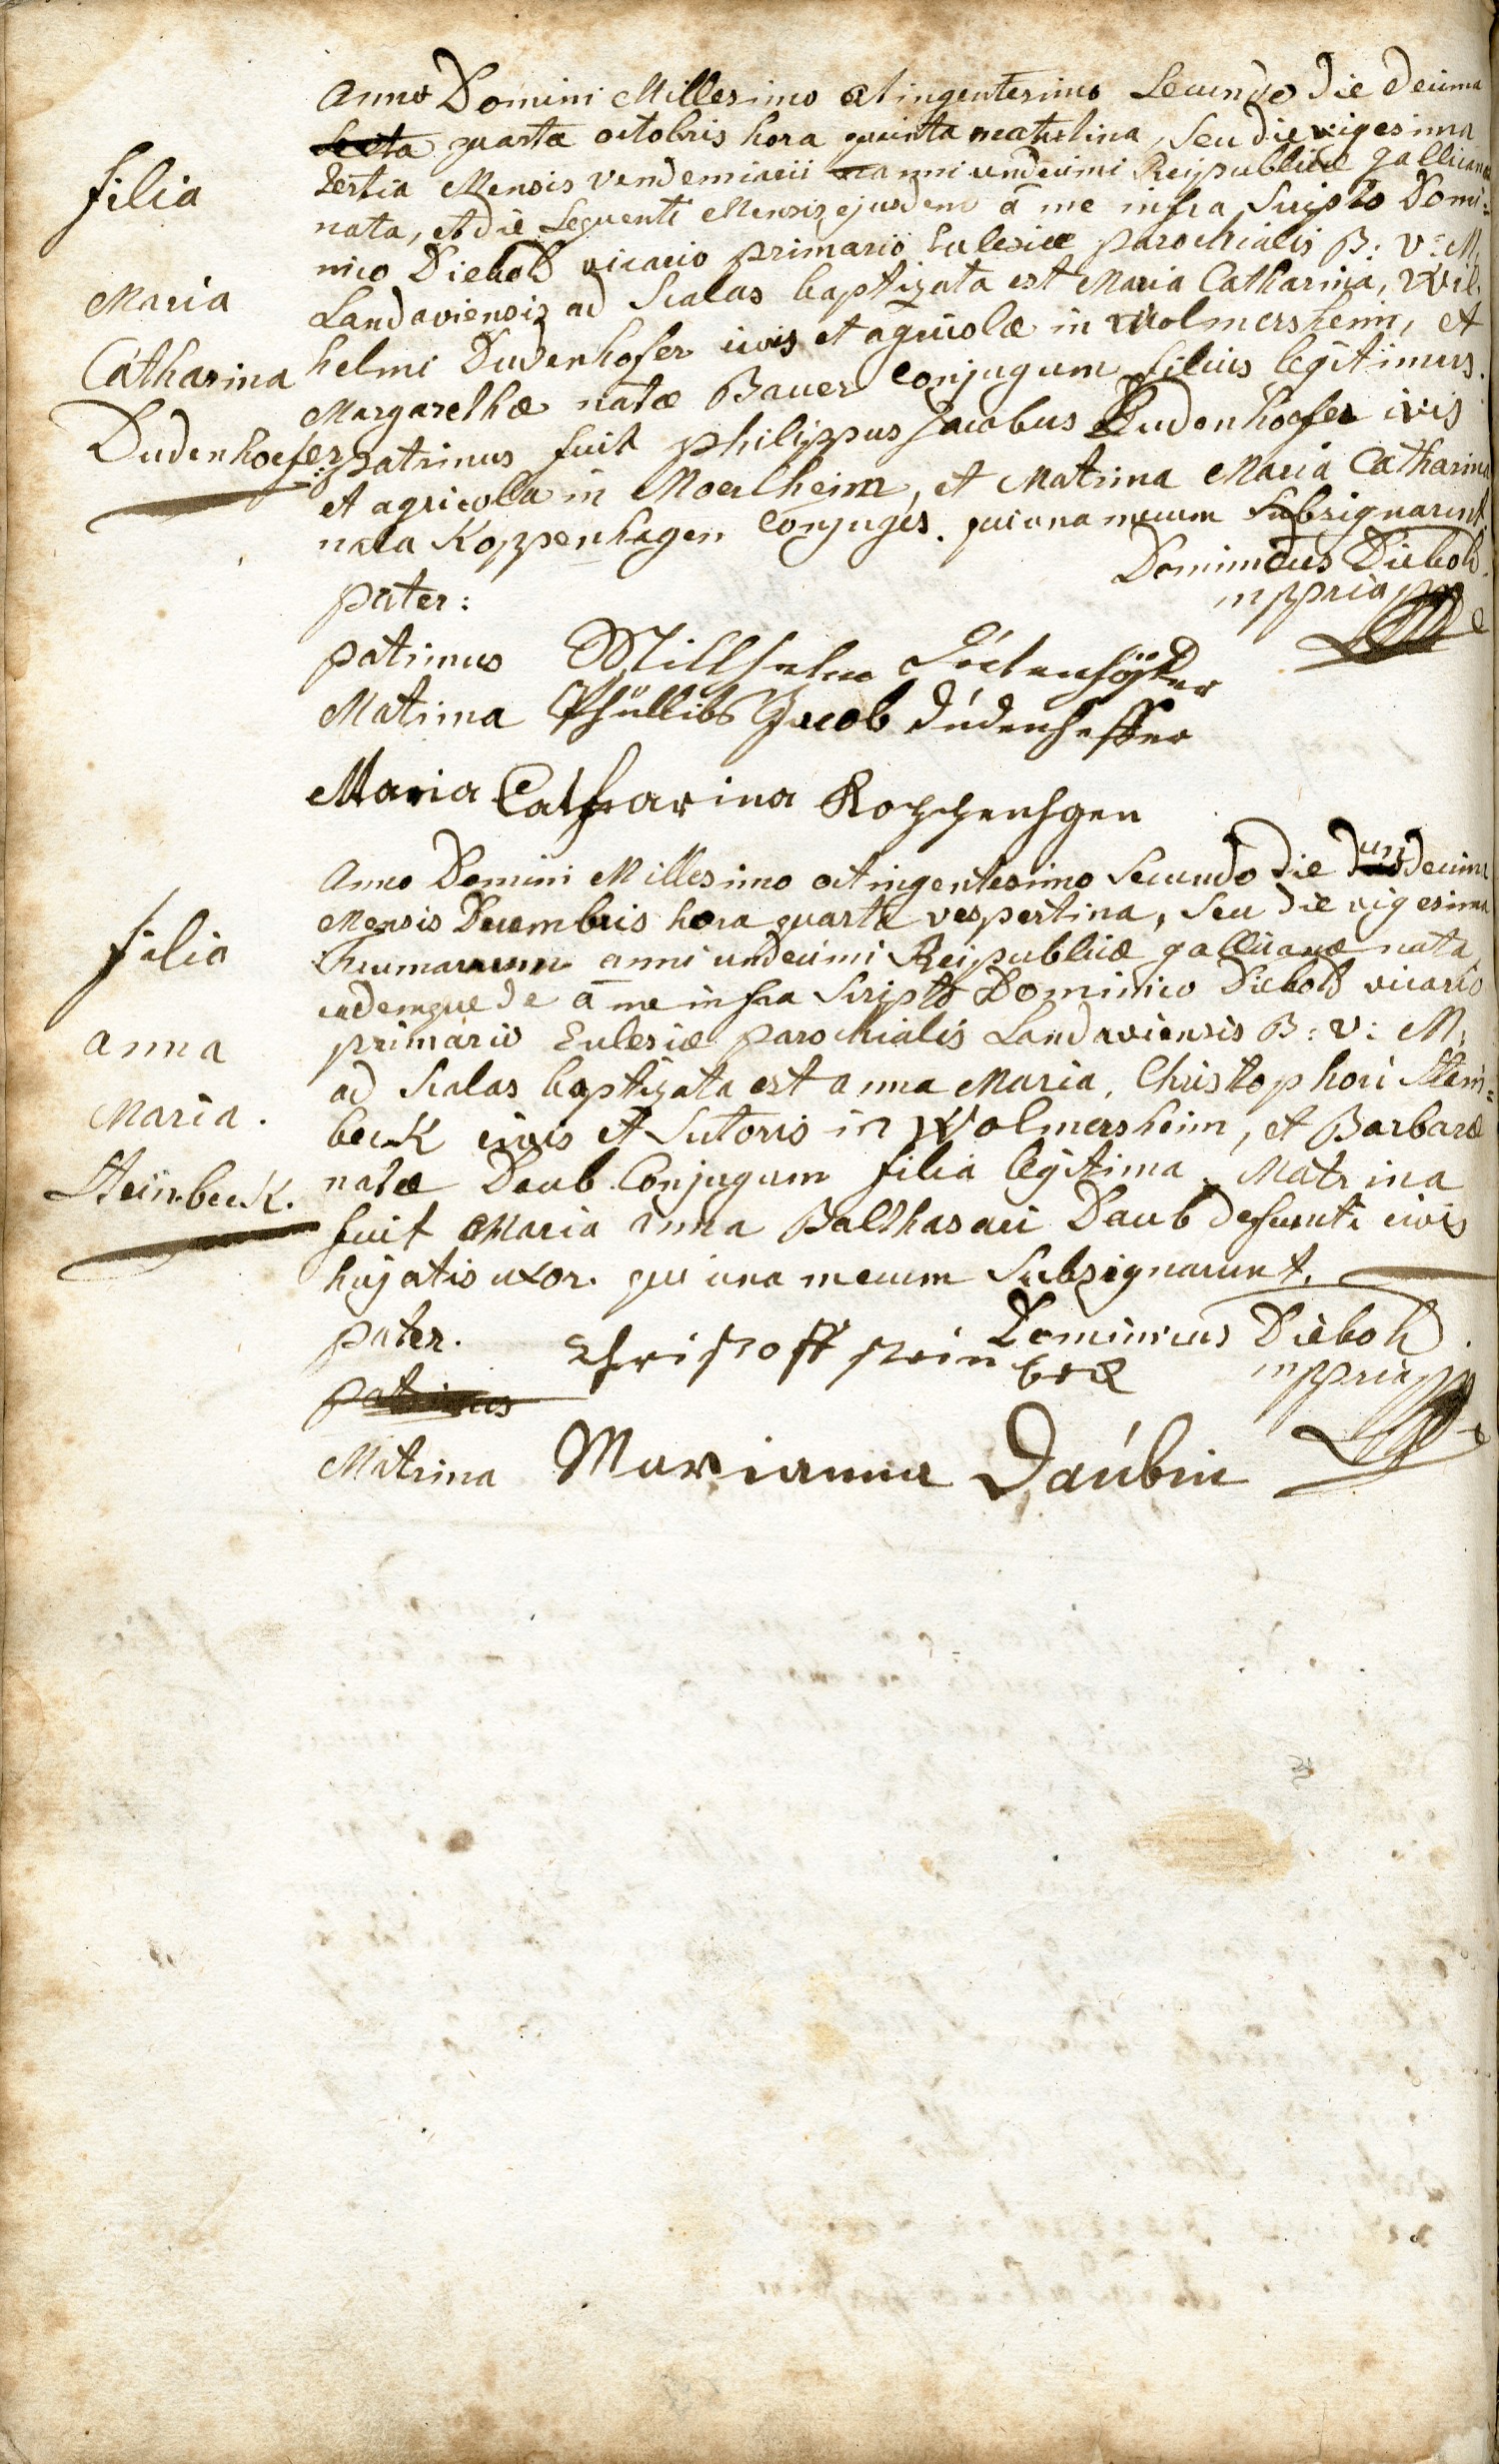 Anno Domini Millesimo octingentesimo Secundo die decima
quarta octobris hora quinta matutina, seu die vigesima
tertia Mensis vendemiarii anni undecimi Reipublicæ gallicanæ
filia
nata, et die sequenti Mensis ejusdem a me infra scripto Domi=
nico Diebold vicario primario Eclesiæ parochialis B: V: M.
Maria
Landaviensis ad Scalas baptizata est Maria Catharina, Wil.
helmi Dudenhofer civis et agricolæ in Wolmersheim, et
Catharina
Margarethæ natæ Bauer Conjugum filius legitimus.
Dudenhoefer
patrinus fuit philippus Jacobus Dudenhoefer civis
et agricola in Moerlheim, et Matrina Maria Catharina
nata Koppenhagen Conjuges. qui una mecum subsignarunt.
Dominicus Diebold.
mppria
pater:
patrinus Willhelm
Matrina Phüllibs Jacob Dúdenheffer
Maria Catharina Koppenhgen
Anno Domini Millesimo octingentesimo Secundo die undecima
Mensis Decembris hora quarta vespertina, seu die vigesima
filia
anni undecimi Reipublicæ gallicanæ nata,
eademque de a me infra Scripto Dominico Diebold vicario
anna
primario Eclesiæ parochialis Landaviensis B: V: M:
ad Scalas baptizata est anna Maria, Christophori Stein=
Maria.
beck civis et Sutoris in Wolmersheim, et Barbaræ
Steinbeck.
natæ Daub Conjugum filia legitima. Matrina
fuit Maria Anna Balthasari Daub defuncti civis
hujatis uxor. qui una mecum Subsignarunt.
Dominicus Diebold.
mppria
pater. Christoff steinbeck
patrinus
Matrina Marianna Daúbin